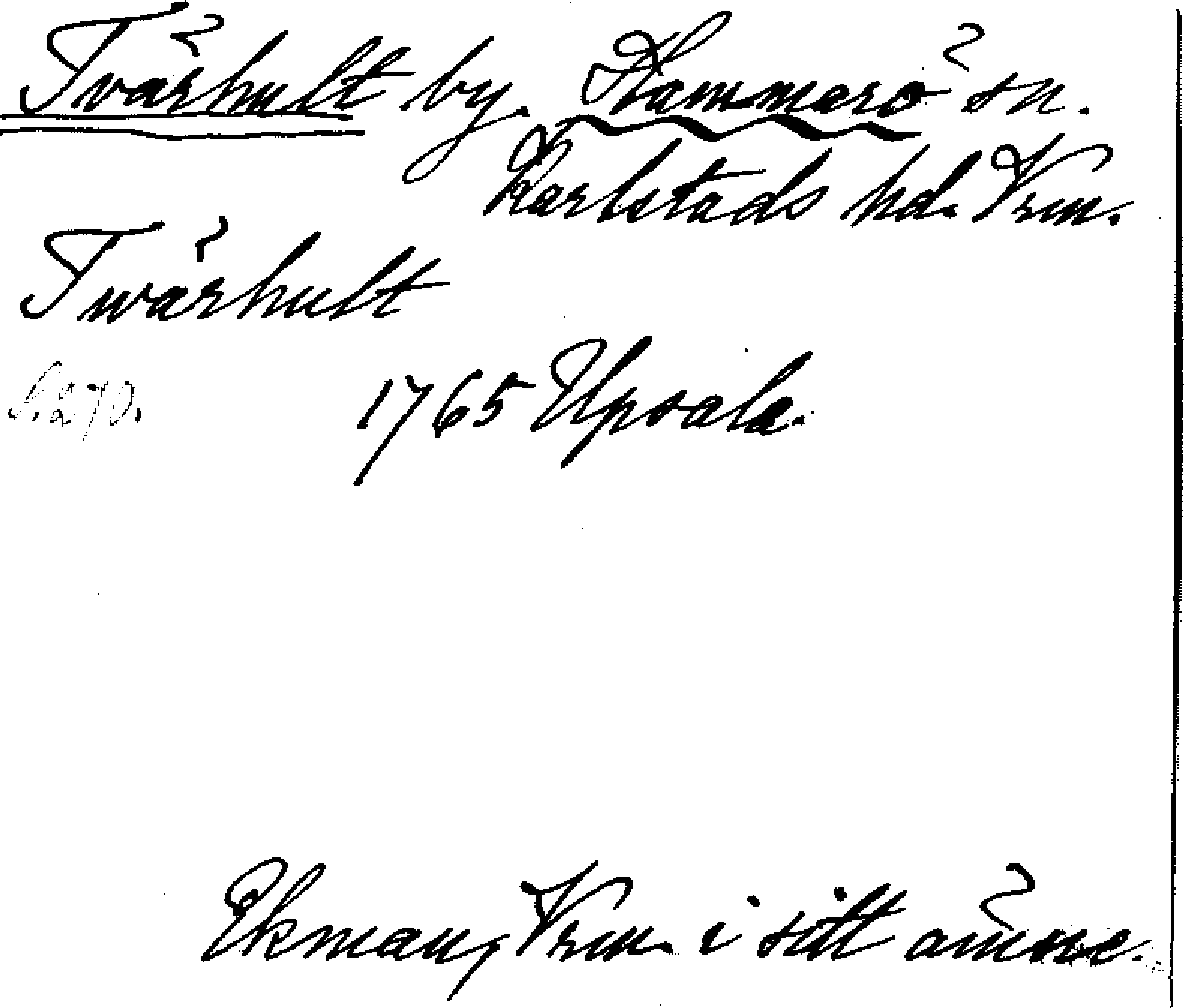 Tvärhult by. Hammarö sn.
Karlstads hd. Vrm.
Twärhult
s. 270.
1765 Upsala.
Ekman, Vrm. i sitt ämne.